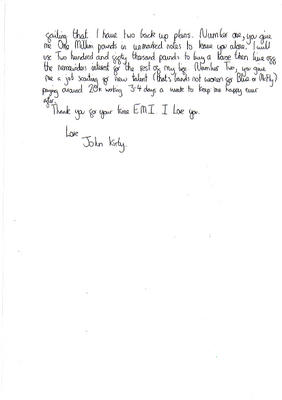 failing that I have two back up plans. Number one, you give
me One Million pounds in unmarked notes to leave you alone. I will
use Two hundred and fifty thousand pounds to buy a house then live off
the remainders interest for the rest of my life. Number Two, you give
me a job scouting for new talent (that's bands not women for Blue or McFly)
paying around 20k working 3-4 days a week to keep me happy ever
after.
Thank you for your time EMI. I Love you.
Love
John Kirby.